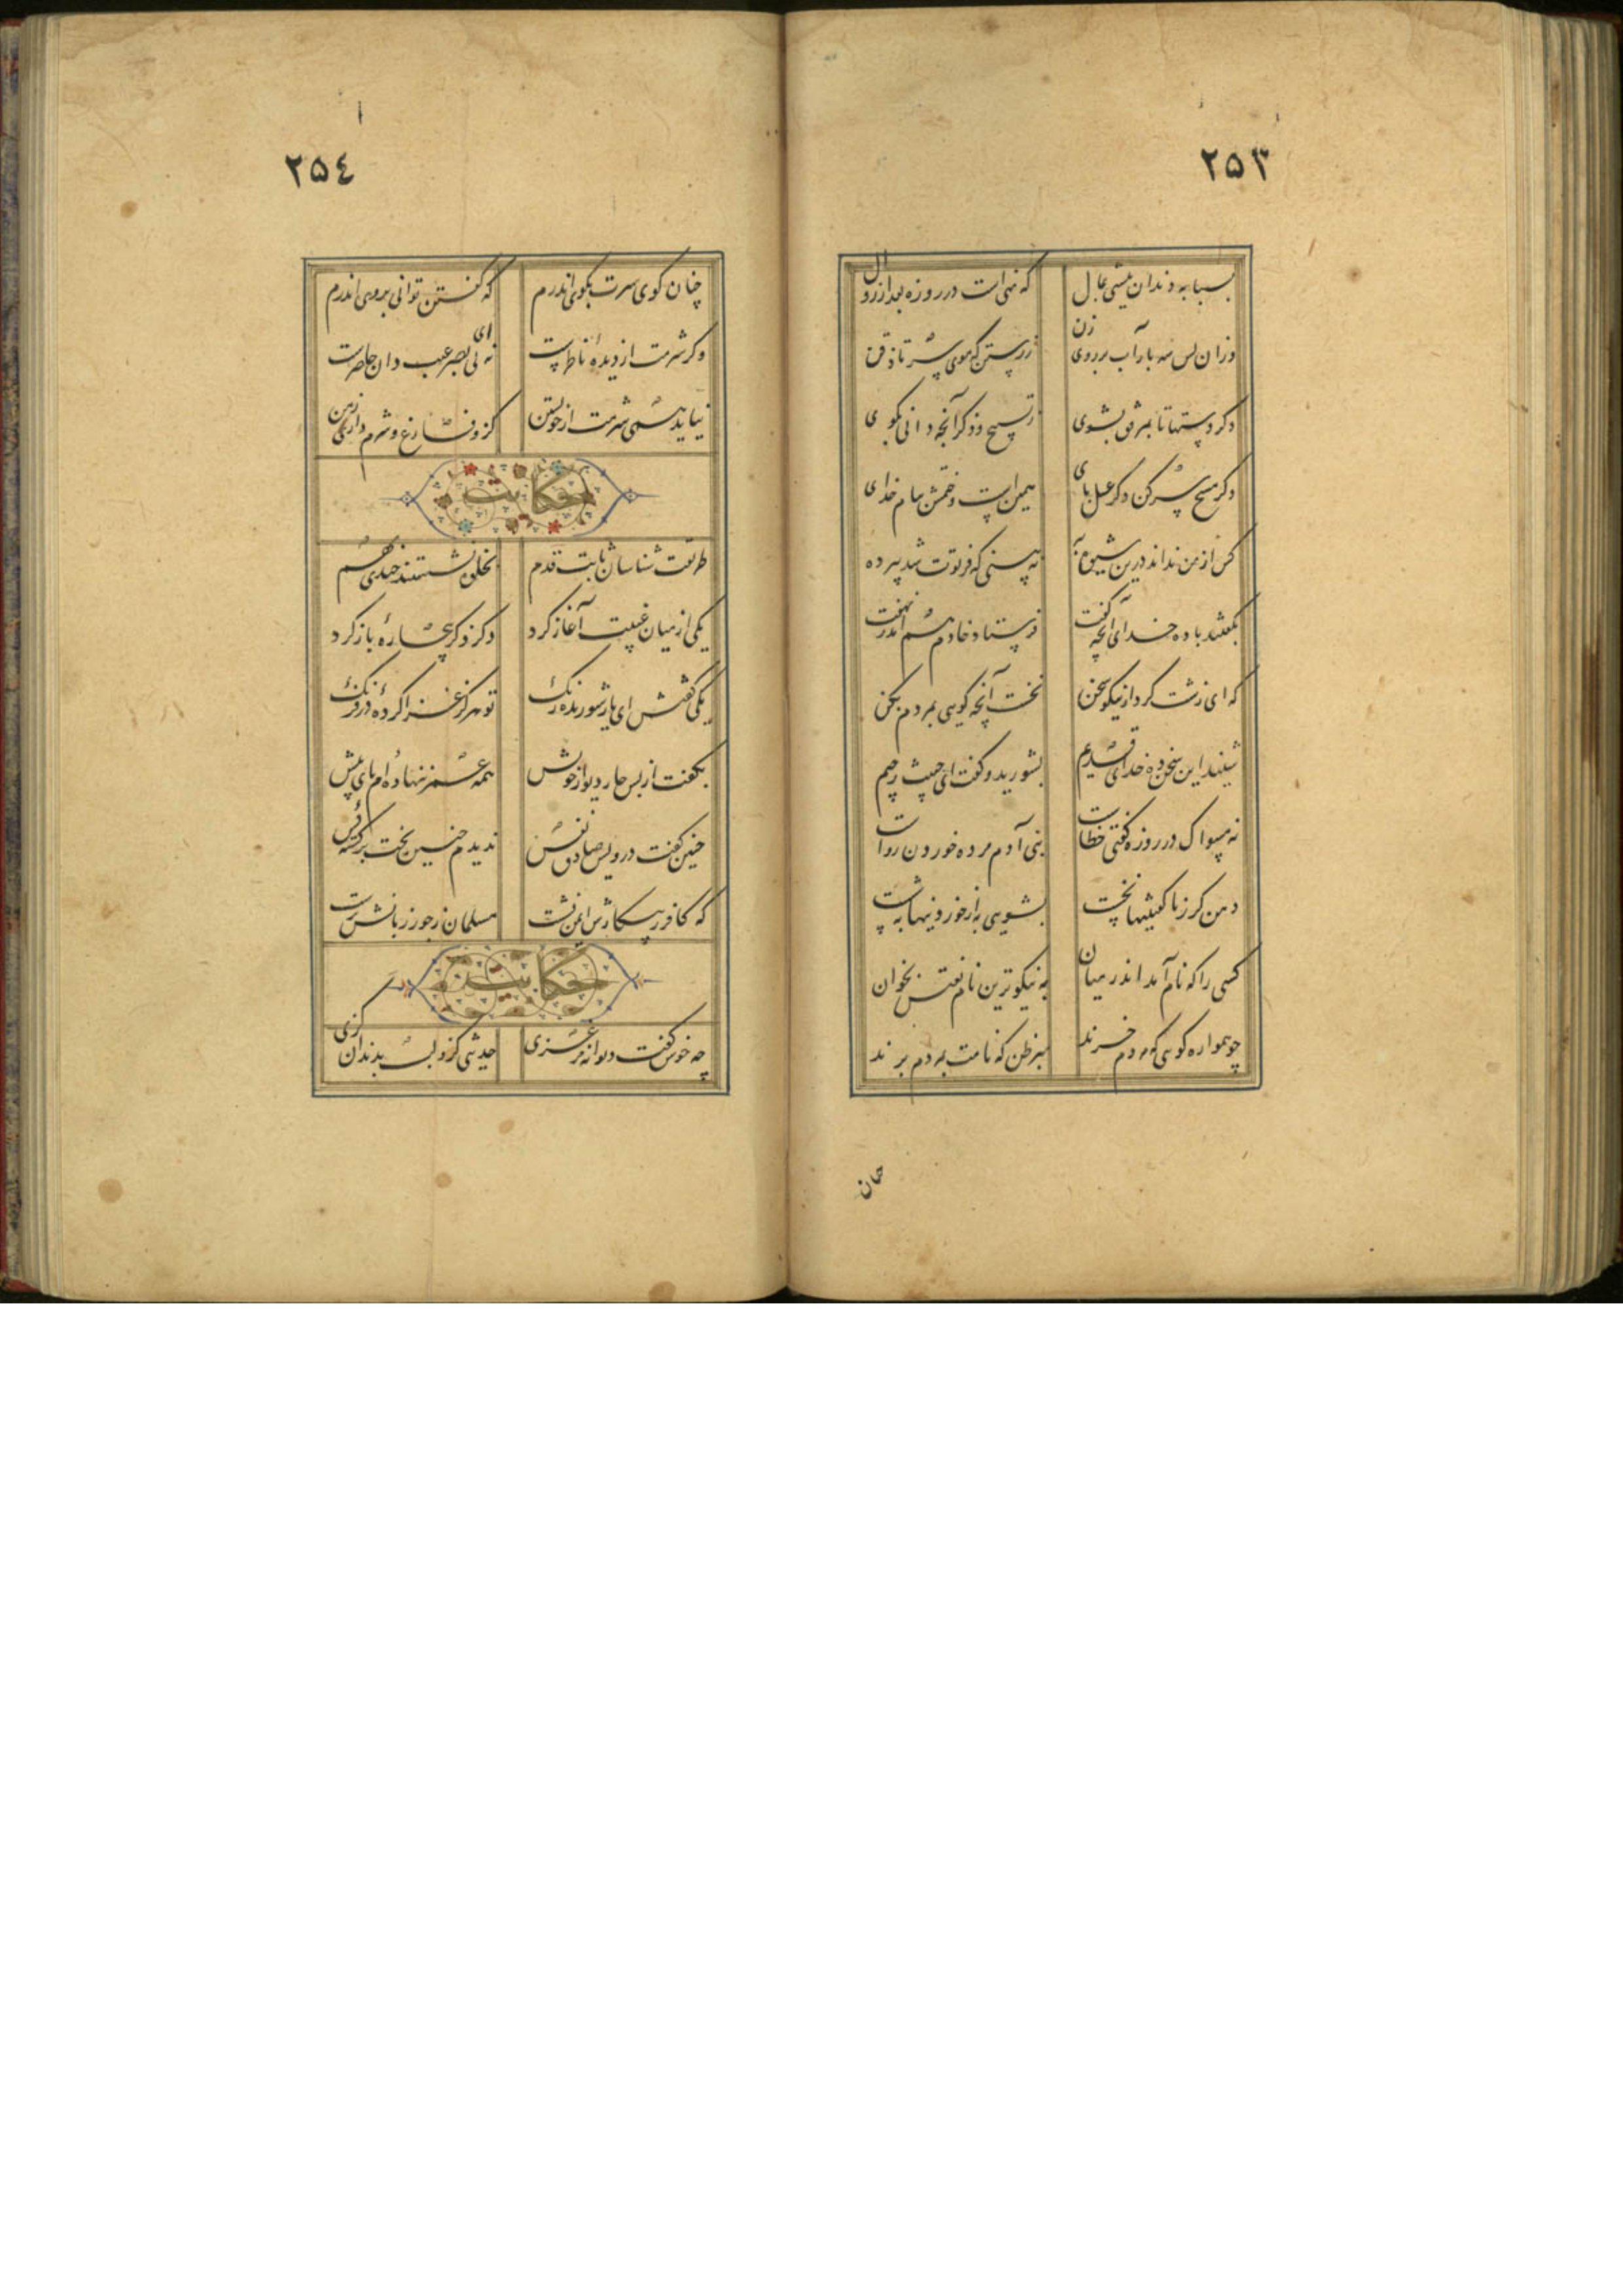 ۲۵۳
بسبابه دندان پیشین بمال که نهی است در روزه بعد از زوال
وزان پس سه بار آب بر روی زن ز رستن که موی سر تا ذقن
دگر دستها تا بمرفق بشوی ز تسبیح و ذکر آنچه دانی بکوی
دگر مسح سر کن دگر غسل پای همین است و ختمش بنام خدای
کس از من نداند درین شیوه به نه بینی که فرتوت شد پیر ده
بگفتند با ده خدای آنچه گفت فرستاد خادم هم اندر نهفت
که ای زشت کردار نیکو سخن نخست آنچه گویی بمردم بکن
شنید این سخن ده خدای قدیم بشورید و گفت ای خبیث رجیم
نه مسواک در روزه گفتی خطاست بنی آدم مرده خوردن رواست
دهن کو ز ناگفتیها نخست بشوی به از خوردنیها به شست
کسی را که نام آمد اندر میان به نیکوترین نام نعتش بخوان
چو همواره گویی که مردم خرند مبر ظن که نامت به مردم برند
چنان
۲۵٤
چنان کوی سرت بکوی اندرم که گفتن توانی بروی اندرم
وکر شرمت از دیدهٔ ناظرست نه ای بی بصر غیب دان حاضرست
نیاید همی شرمت از خویشتن کزو فارغ و شرم داری ز من
حکایت
طریقت شناسان ثابت قدم بخلوت نشستند چندی بهم
یکی از میان غیبت آغاز کرد در ذکر بیچارهٔ باز کرد
یکی گفتش ای یار شوریده رنک تو هرکز غزا کردهٔ در فرنک
بگفت از پس چار دیوار خویش همه عمر ننهاده ام پای پیش
چنین گفت درویش صادق نفس ندیدم چنین بخت برگشته کس
که کافر ز پیکارش ایمن نشست مسلمان ز جور زبانش نرست
حکایت
چه خوش گفت دیوانهٔ مرغزی حدیثی کزو لب بدندان گزی